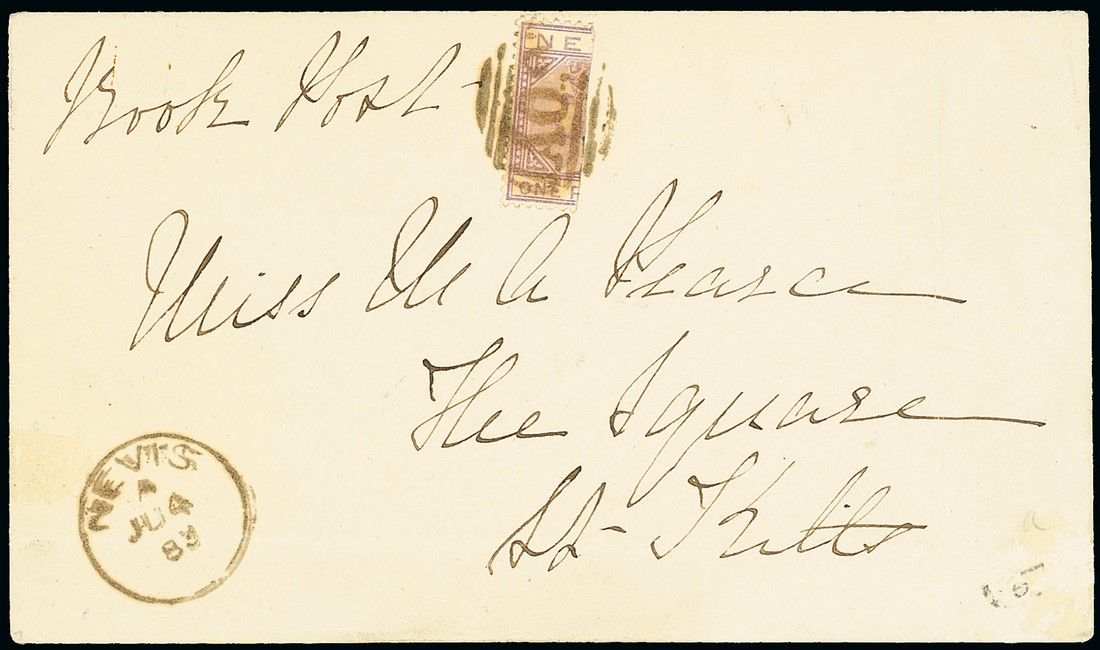 Book Post
NE
A09
ONE P
Miss M A Pearce
The Square
St. Kitts
NEVIS
A
JU 4
83